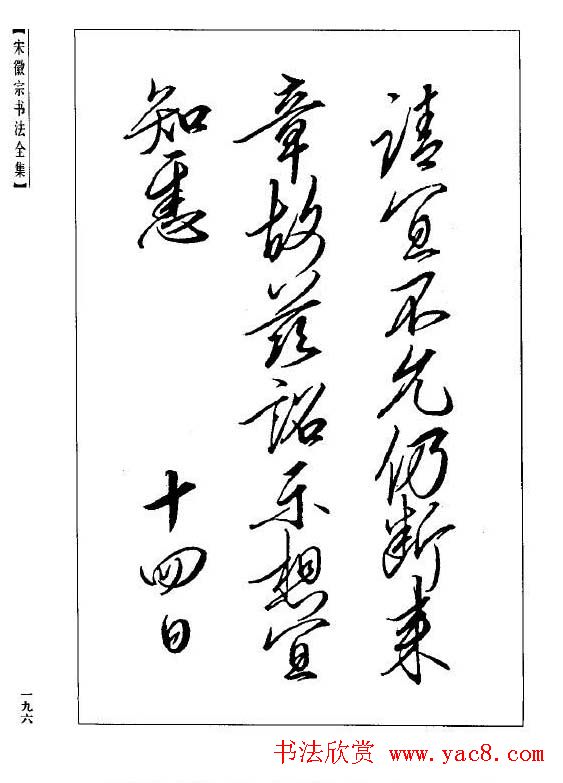 【宋徽宗书法全集】
请宜不允仍断来
章故兹诏示想宜
知悉
十四日
一九六
书法欣赏 www.yac8.com